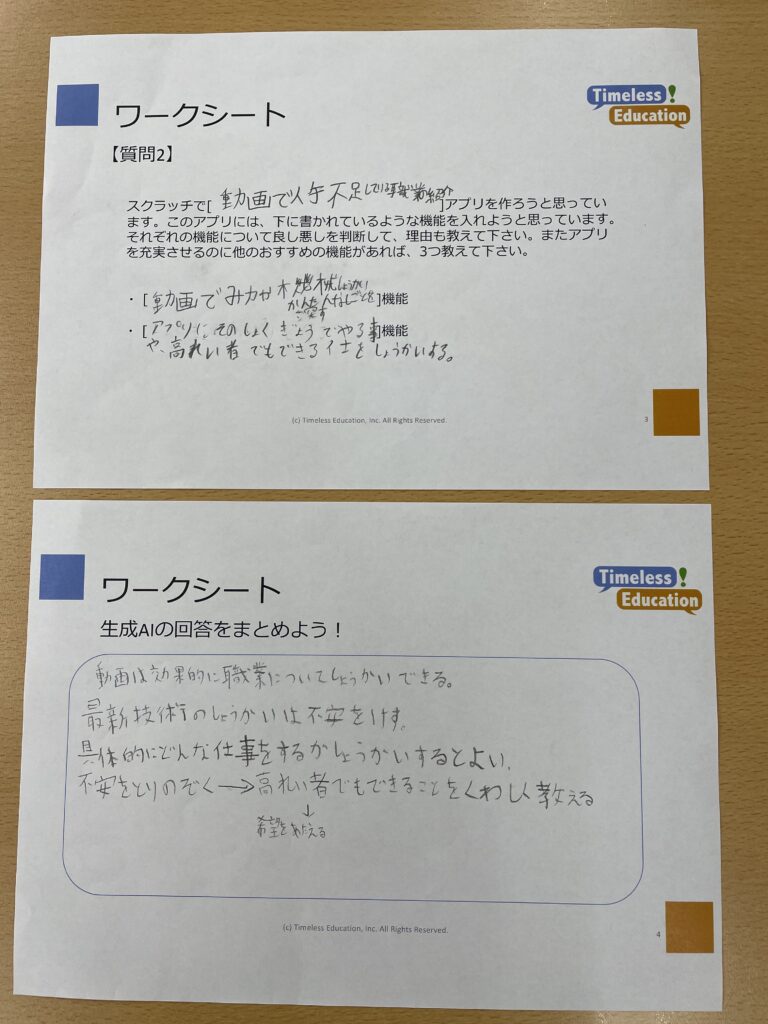 ワークシート
Timeless!
Education
【質問2】
スクラッチで[動画で人手不足している職業紹介]アプリを作ろうと思ってい
ます。このアプリには、下に書かれているような機能を入れようと思っています。
それぞれの機能について良し悪しを判断して、理由も教えて下さい。またアプリ
を充実させるのに他のおすすめの機能があれば、3つ教えて下さい。
・[動画で しょうかい
]機能
・[アプリにそのしょくぎょうでやる事]機能
や、高れい者でもできる仕 をしょうかいする。
(c) Timeless Education, Inc. All Rights Reserved.
3
ワークシート
Timeless!
Education
生成AIの回答をまとめよう！
動画は効果的に職業についてしょうかいできる。
最新技術のしょうかいは不安をけす。
具体的にどんな仕事をするかしょうかいするとよい。
不安をとりのぞく→高れい者でもできることをくわしく教える
↓
希望をあたえる
(c) Timeless Education, Inc. All Rights Reserved.
4